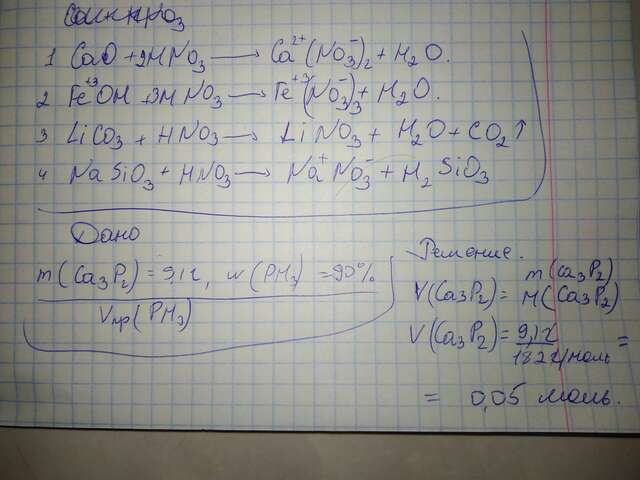 1 CaO + 2HNO₃ ⟶ Ca²⁺(NO₃⁻)₂ + H₂O.
2 Fe⁺³OH + 3HNO₃ ⟶ Fe⁺³(NO₃⁻)₃ + H₂O.
3 LiCO₃ + HNO₃ ⟶ LiNO₃ + H₂O + CO₂↑
4 NaSiO₃ + HNO₃ ⟶ Na⁺NO₃⁻ + H₂SiO₃
Дано
m(Ca₃P₂) = 9,1г, w(PH₃) = 90%
Vпр(PH₃)
Решение.
V(Ca₃P₂) = m(Ca₃P₂) / M(Ca₃P₂)
V(Ca₃P₂) = 9,1г / 182г/моль =
= 0,05 моль.